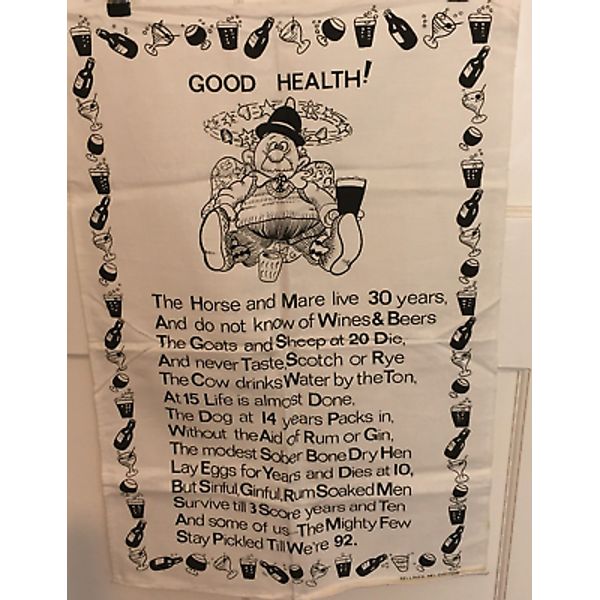 GOOD HEALTH!
The Horse and Mare live 30 years,
And do not know of Wines & Beers
The Goats and Sheep at 20 Die,
And never Taste, Scotch or Rye
The Cow drinks Water by the Ton,
At 15 Life is almost Done,
The Dog at 14 years Packs in,
Without the Aid of Rum or Gin,
The modest Sober Bone Dry Hen
Lay Eggs for Years and Dies at 10,
But Sinful, Ginful, Rum Soaked Men
Survive till 3 Score years and Ten
And some of us The Mighty Few
Stay Pickled Till We're 92.